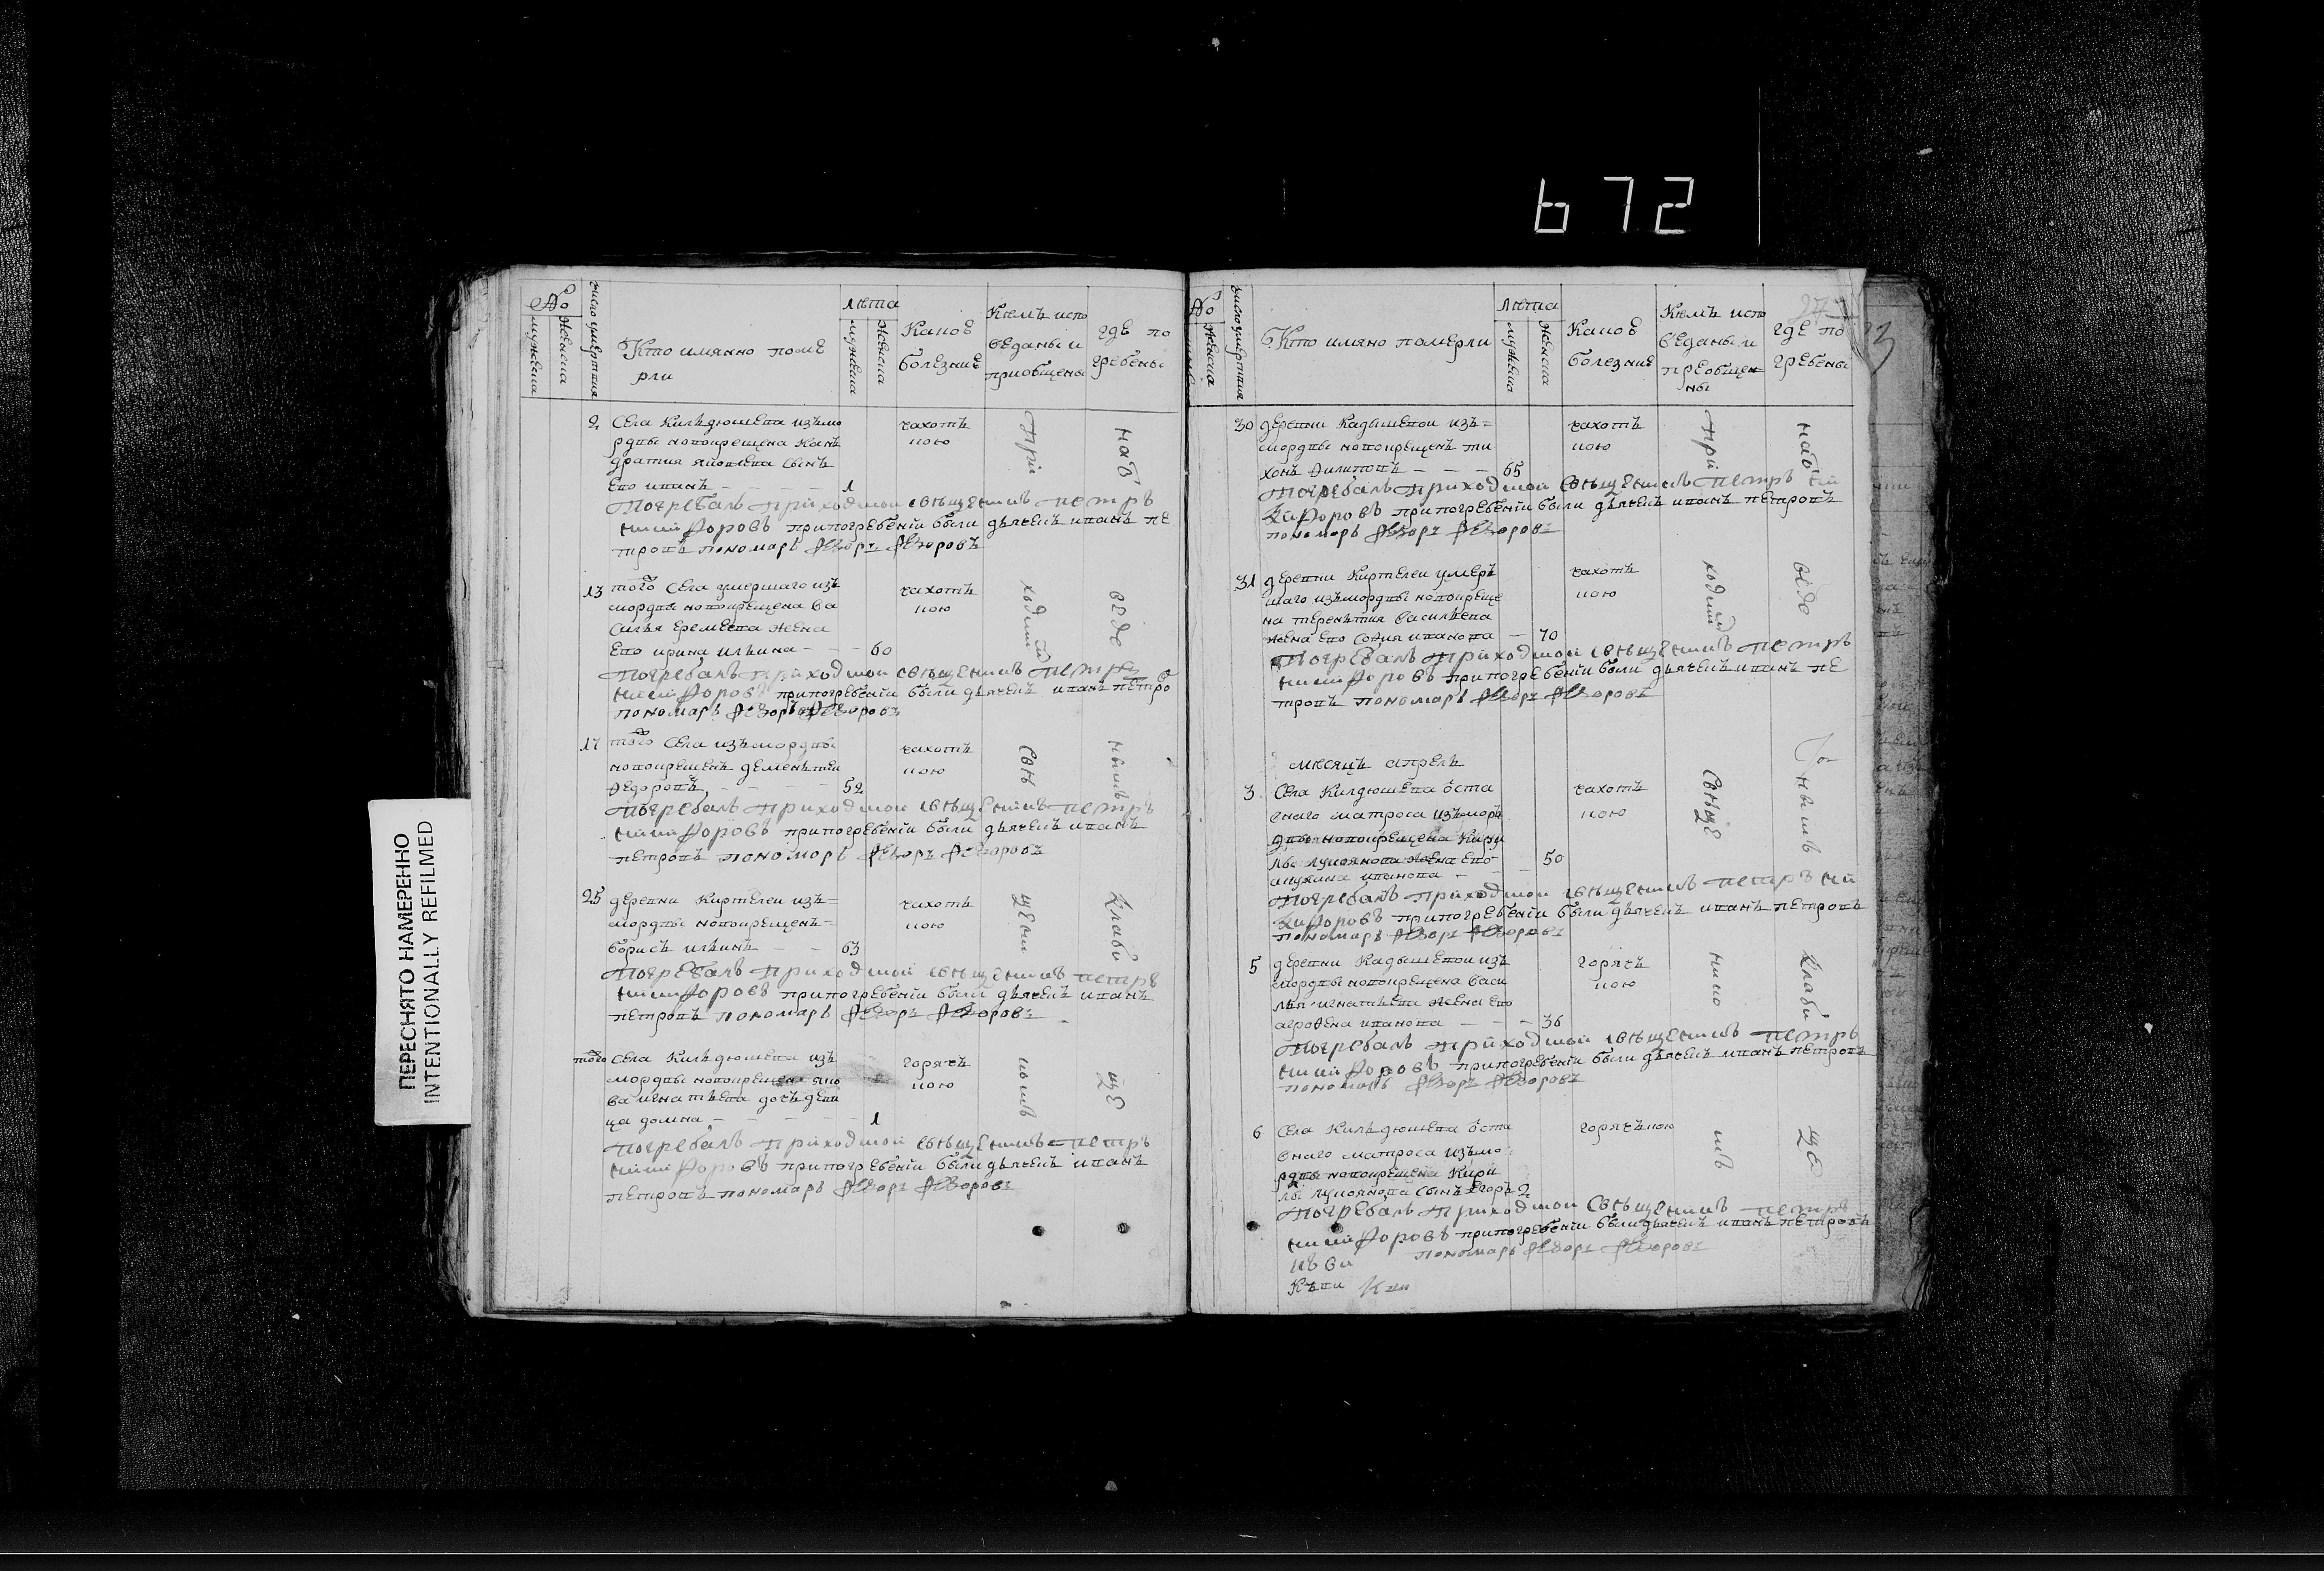 672
ПЕРЕСНЯТО НАМЕРЕННО
INTENTIONALLY REFILMED
№
мужеска
женска
число умертвия
Кто имянно поме
рли
лета
мужеска
женска
Какою
болезние
Кемъ испо
веданы и
приобщены
где по
гребены
2 села Кильдюшева изъ мо
рдвы новокрещена Кань
дратия яковлева сынъ
ево иванъ 1
чахоть
кою
Погребалъ приходской священникъ петръ
никифоровъ при погребении были дьячекъ иванъ пе
тровъ пономарь федоръ федоровъ
13 того села умершаго изъ
мордвы новокрещена ва
силья еремеева жена
ево ирина ильина 60
чахоть
кою
Погребалъ приходской священникъ петръ
никифоровъ при погребении были дьячекъ иванъ петро
пономарь федоръ федоровъ
17 того села изъ мордвы
новокрещенъ деменьтеи
федоровъ 52
чахоть
кою
Погребалъ приходской священникъ петръ
никифоровъ при погребении были дьячекъ иванъ
петровъ пономарь федоръ федоровъ
25 деревни Киртелеи изъ
мордвы новокрещенъ
борисъ ильинъ 63
чахоть
кою
Погребалъ приходской священникъ петръ
никифоровъ при погребении были дьячекъ иванъ
петровъ пономарь федоръ федоровъ
того села Кильдюшева изъ
мордвы новокрещена яко
ва игнатьева дочь деви
ца домна 1
горячь
кою
Погребалъ приходской священникъ петръ
никифоровъ при погребении были дьячекъ иванъ
петровъ пономарь федоръ федоровъ
при
ходский
свя
щени
комъ
на об
веде
нымъ
кладби
ще
№
женска
число умертвия
Кто имяно померли
лета
мужеска
женска
Какою
болезние
Кемъ испо
веданы и
преобщен
ны
где по
гребены
30 деревни Кадышевои изъ
мордвы новокрещенъ ти
хонъ филиповъ 65
чахоть
кою
Погребалъ приходской священникъ петръ ни
кифоровъ при погребении были дьячекъ иванъ петровъ
пономарь федоръ федоровъ
31 деревни Киртелеи умерь
шаго изъ мордвы новокреще
на терентия васильева
жена ево софия иванова 70
чахоть
кою
Погребалъ приходской священникъ петръ
никифоровъ при погребении были дьячекъ иванъ пе
тровъ пономарь федоръ федоровъ
месяцъ апрель
3 села Килдюшева отста
внаго матроса изъ морь
двы новокрещена Кири
лы лукоянова жена ево
акулина иванова 50
чахоть
кою
Погребалъ приходской священникъ петръ ни
кифоровъ при погребении были дьячекъ иванъ петровъ
пономарь федоръ федоровъ
5 деревни Кадышевои изъ
мордвы новокрещена васи
лья игнатьева жена ево
агрофена иванова 36
горячь
кою
Погребалъ приходской священникъ петръ
никифоровъ при погребении были дьячекъ иванъ петровъ
пономарь федоръ федоровъ
6 села Кильдюшева отста
внаго матроса изъ мо
рдвы новокрещена Кири
лы лукоянова сынъ егоръ 2
горячькою
Погребалъ приходской священникъ петръ
никифоровъ при погребении были дьячекъ иванъ петровъ
пономарь федоръ федоровъ
при
ходский
свяще
нико
мъ
на об
веде
нымъ
кладби
ще